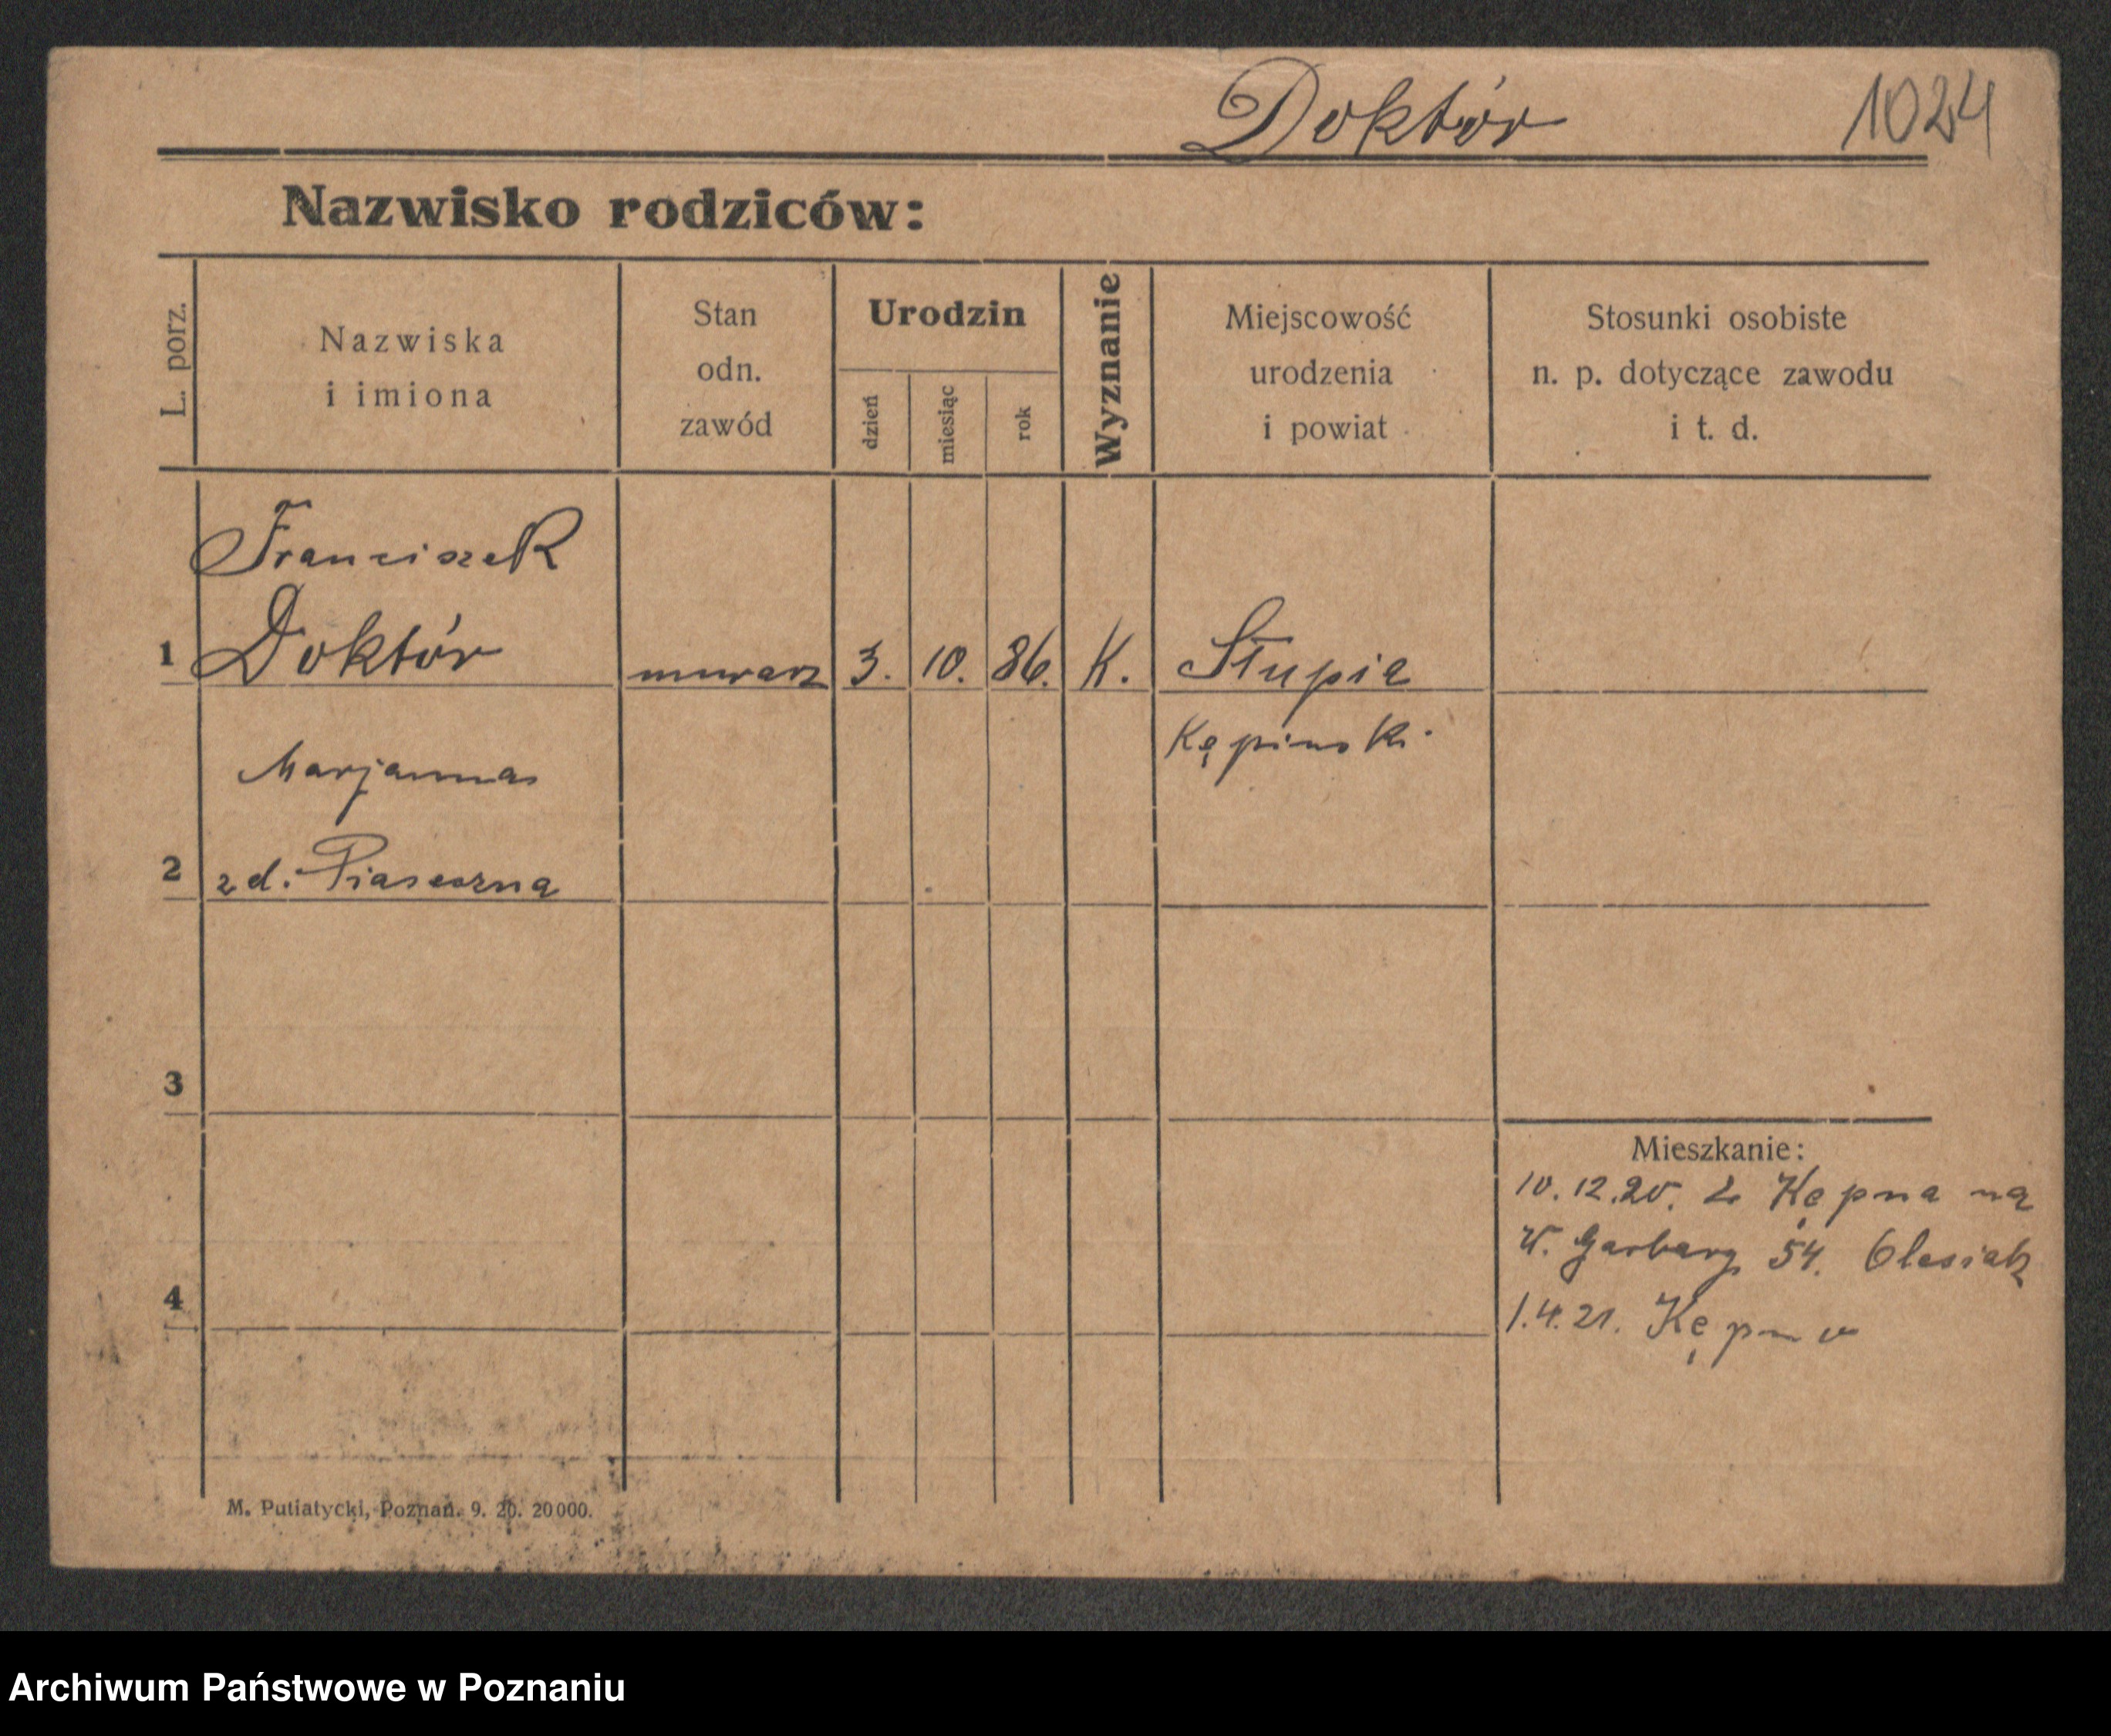 Doktór 1024
Nazwisko rodziców:
L. porz.
Nazwiska
i imiona
Stan
odn.
zawód
Urodzin
dzień
miesiąc
rok
Wyznanie
Miejscowość
urodzenia
i powiat
Stosunki osobiste
n. p. dotyczące zawodu
i t. d.
Franciszek
1 Doktór murarz 3. 10. 86. K. Słupia
Kępinski.
Marjanna
2 zd. Piaseczna
3
Mieszkanie:
10.12.20. z Kępna na
W. Garbary 54. Olesiak
4
1.4.21. Kępno
M. Putiatycki, Poznań. 9. 20. 20000.
Archiwum Państwowe w Poznaniu